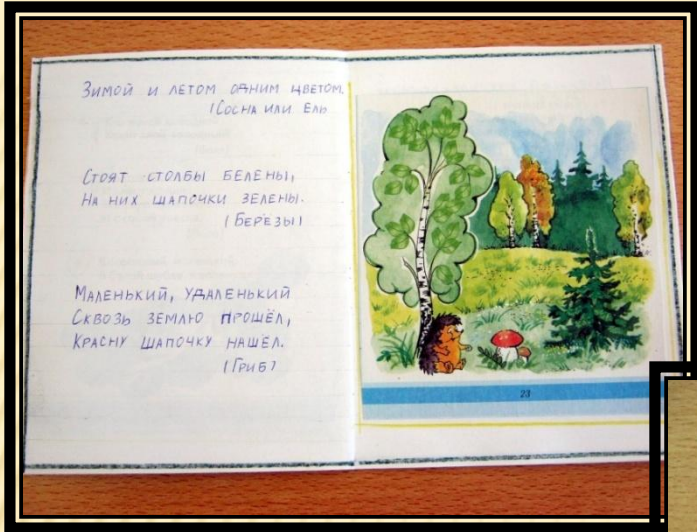 Зимой и летом одним цветом.
(Сосна или ель
Стоят столбы белены,
На них шапочки зелены.
(Березы)
Маленький, удаленький
Сквозь землю прошёл,
Красну шапочку нашёл.
(Гриб)
23